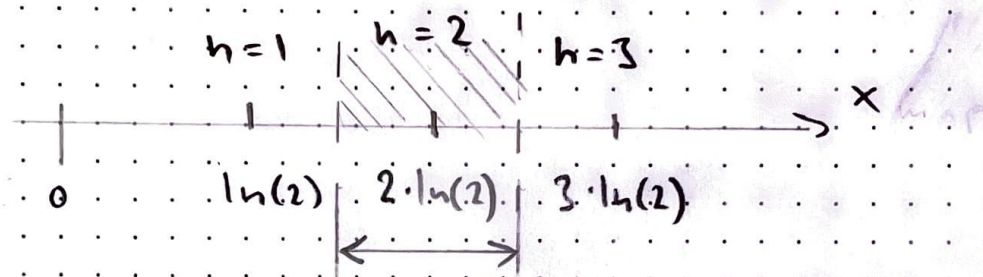 n=1 n = 2 n=3
x
0 ln(2) 2·ln(2) 3·ln(2)